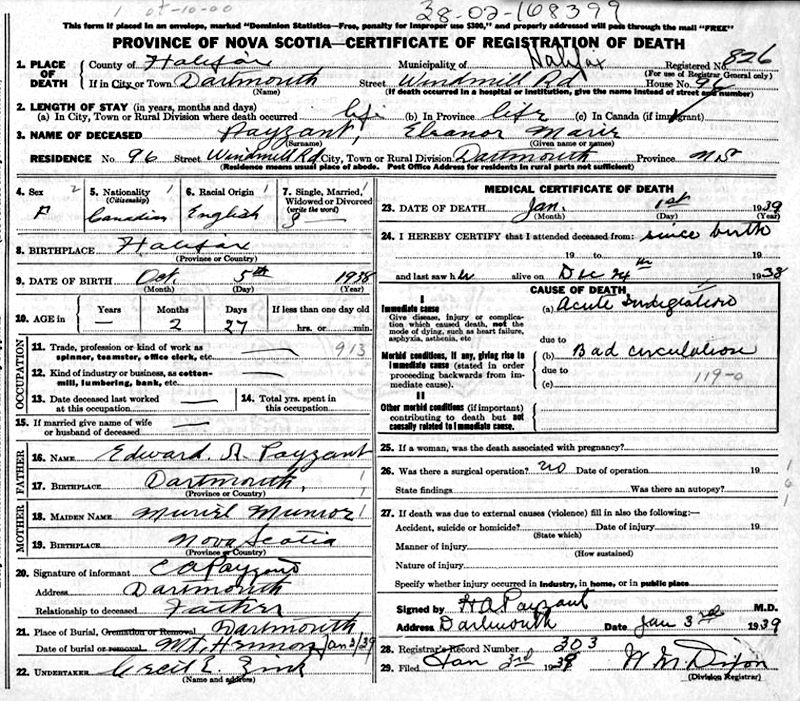 1 05-10-00
38-02-168399
This form if placed in an envelope, marked "Dominion Statistics—Free, penalty for improper use $300," and properly addressed will pass through the mail "FREE"
PROVINCE OF NOVA SCOTIA—CERTIFICATE OF REGISTRATION OF DEATH
1. PLACE OF DEATH County of Halifax Municipality of Halifax Registered No. 826
(For use of Registrar General only)
If in City or Town Dartmouth Street Windmill Rd House No. 96
(Name) (If death occurred in a hospital or institution, give the name instead of street and number)
2. LENGTH OF STAY (in years, months and days)
(a) In City, Town or Rural Division where death occurred (b) In Province life (c) In Canada (if immigrant)
3. NAME OF DECEASED Payzant, Eleanor Marie
(Surname) (Given name or names)
RESIDENCE No. 96 Street Windmill Rd City, Town or Rural Division Dartmouth Province N.S
(Residence means usual place of abode. Post Office Address for residents in rural parts not sufficient)
4. Sex 2
F
5. Nationality 1
(Citizenship)
Canadian
6. Racial Origin 1
English
7. Single, Married, Widowed or Divorced
(write the word)
S
8. BIRTHPLACE Halifax
(Province or Country)
9. DATE OF BIRTH Oct. 5th 1938
(Month) (Day) (Year)
10. AGE in Years Months Days If less than one day old
— 2 27 hrs. or min.
OCCUPATION
11. Trade, profession or kind of work as spinner, teamster, office clerk, etc. — 913
12. Kind of industry or business, as cotton-mill, lumbering, bank, etc. —
13. Date deceased last worked at this occupation
14. Total yrs. spent in this occupation
15. If married give name of wife or husband of deceased —
FATHER
16. NAME Edward A. Payzant
17. BIRTHPLACE Dartmouth, 1
(Province or Country)
MOTHER
18. MAIDEN NAME Muriel Munroe 1
19. BIRTHPLACE Nova Scotia
(Province or Country)
20. Signature of informant E A Payzant
Address Dartmouth
Relationship to deceased Father
21. Place of Burial, Cremation or Removal Dartmouth
Date of burial or removal Mt. Hermon Jan 3/39
22. UNDERTAKER Cecil E. Zink
(Name and address)
MEDICAL CERTIFICATE OF DEATH
23. DATE OF DEATH Jan. 1st 1939
(Month) (Day) (Year)
24. I HEREBY CERTIFY that I attended deceased from: since birth
19 to 19
and last saw h alive on Dec 24th 1938
CAUSE OF DEATH
I
Immediate cause
Give disease, injury or complication which caused death, not the mode of dying, such as heart failure, asphyxia, asthenia, etc
(a) Acute Indigestion
due to
Morbid conditions, if any, giving rise to immediate cause (stated in order proceeding backwards from immediate cause).
(b) Bad circulation
due to
(c) 119-0
II
Other morbid conditions (if important) contributing to death but not causally related to immediate cause.
25. If a woman, was the death associated with pregnancy?
26. Was there a surgical operation? no Date of operation 19
State findings Was there an autopsy?
1
6
1
27. If death was due to external causes (violence) fill in also the following:—
Accident, suicide or homicide? Date of injury 19
(State which)
Manner of injury
(How sustained)
Nature of injury
Specify whether injury occurred in industry, in home, or in public place
Signed by H A Payzant M.D.
Address Dartmouth Date Jan 3rd 1939
28. Registrar's Record Number 303
29. Filed Jan 3rd 1939 W M Dixon
(Division Registrar)